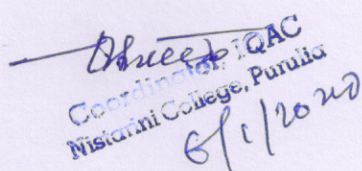 Coordinator, IQAC
Nistarini College, Purulia
6/1/2020